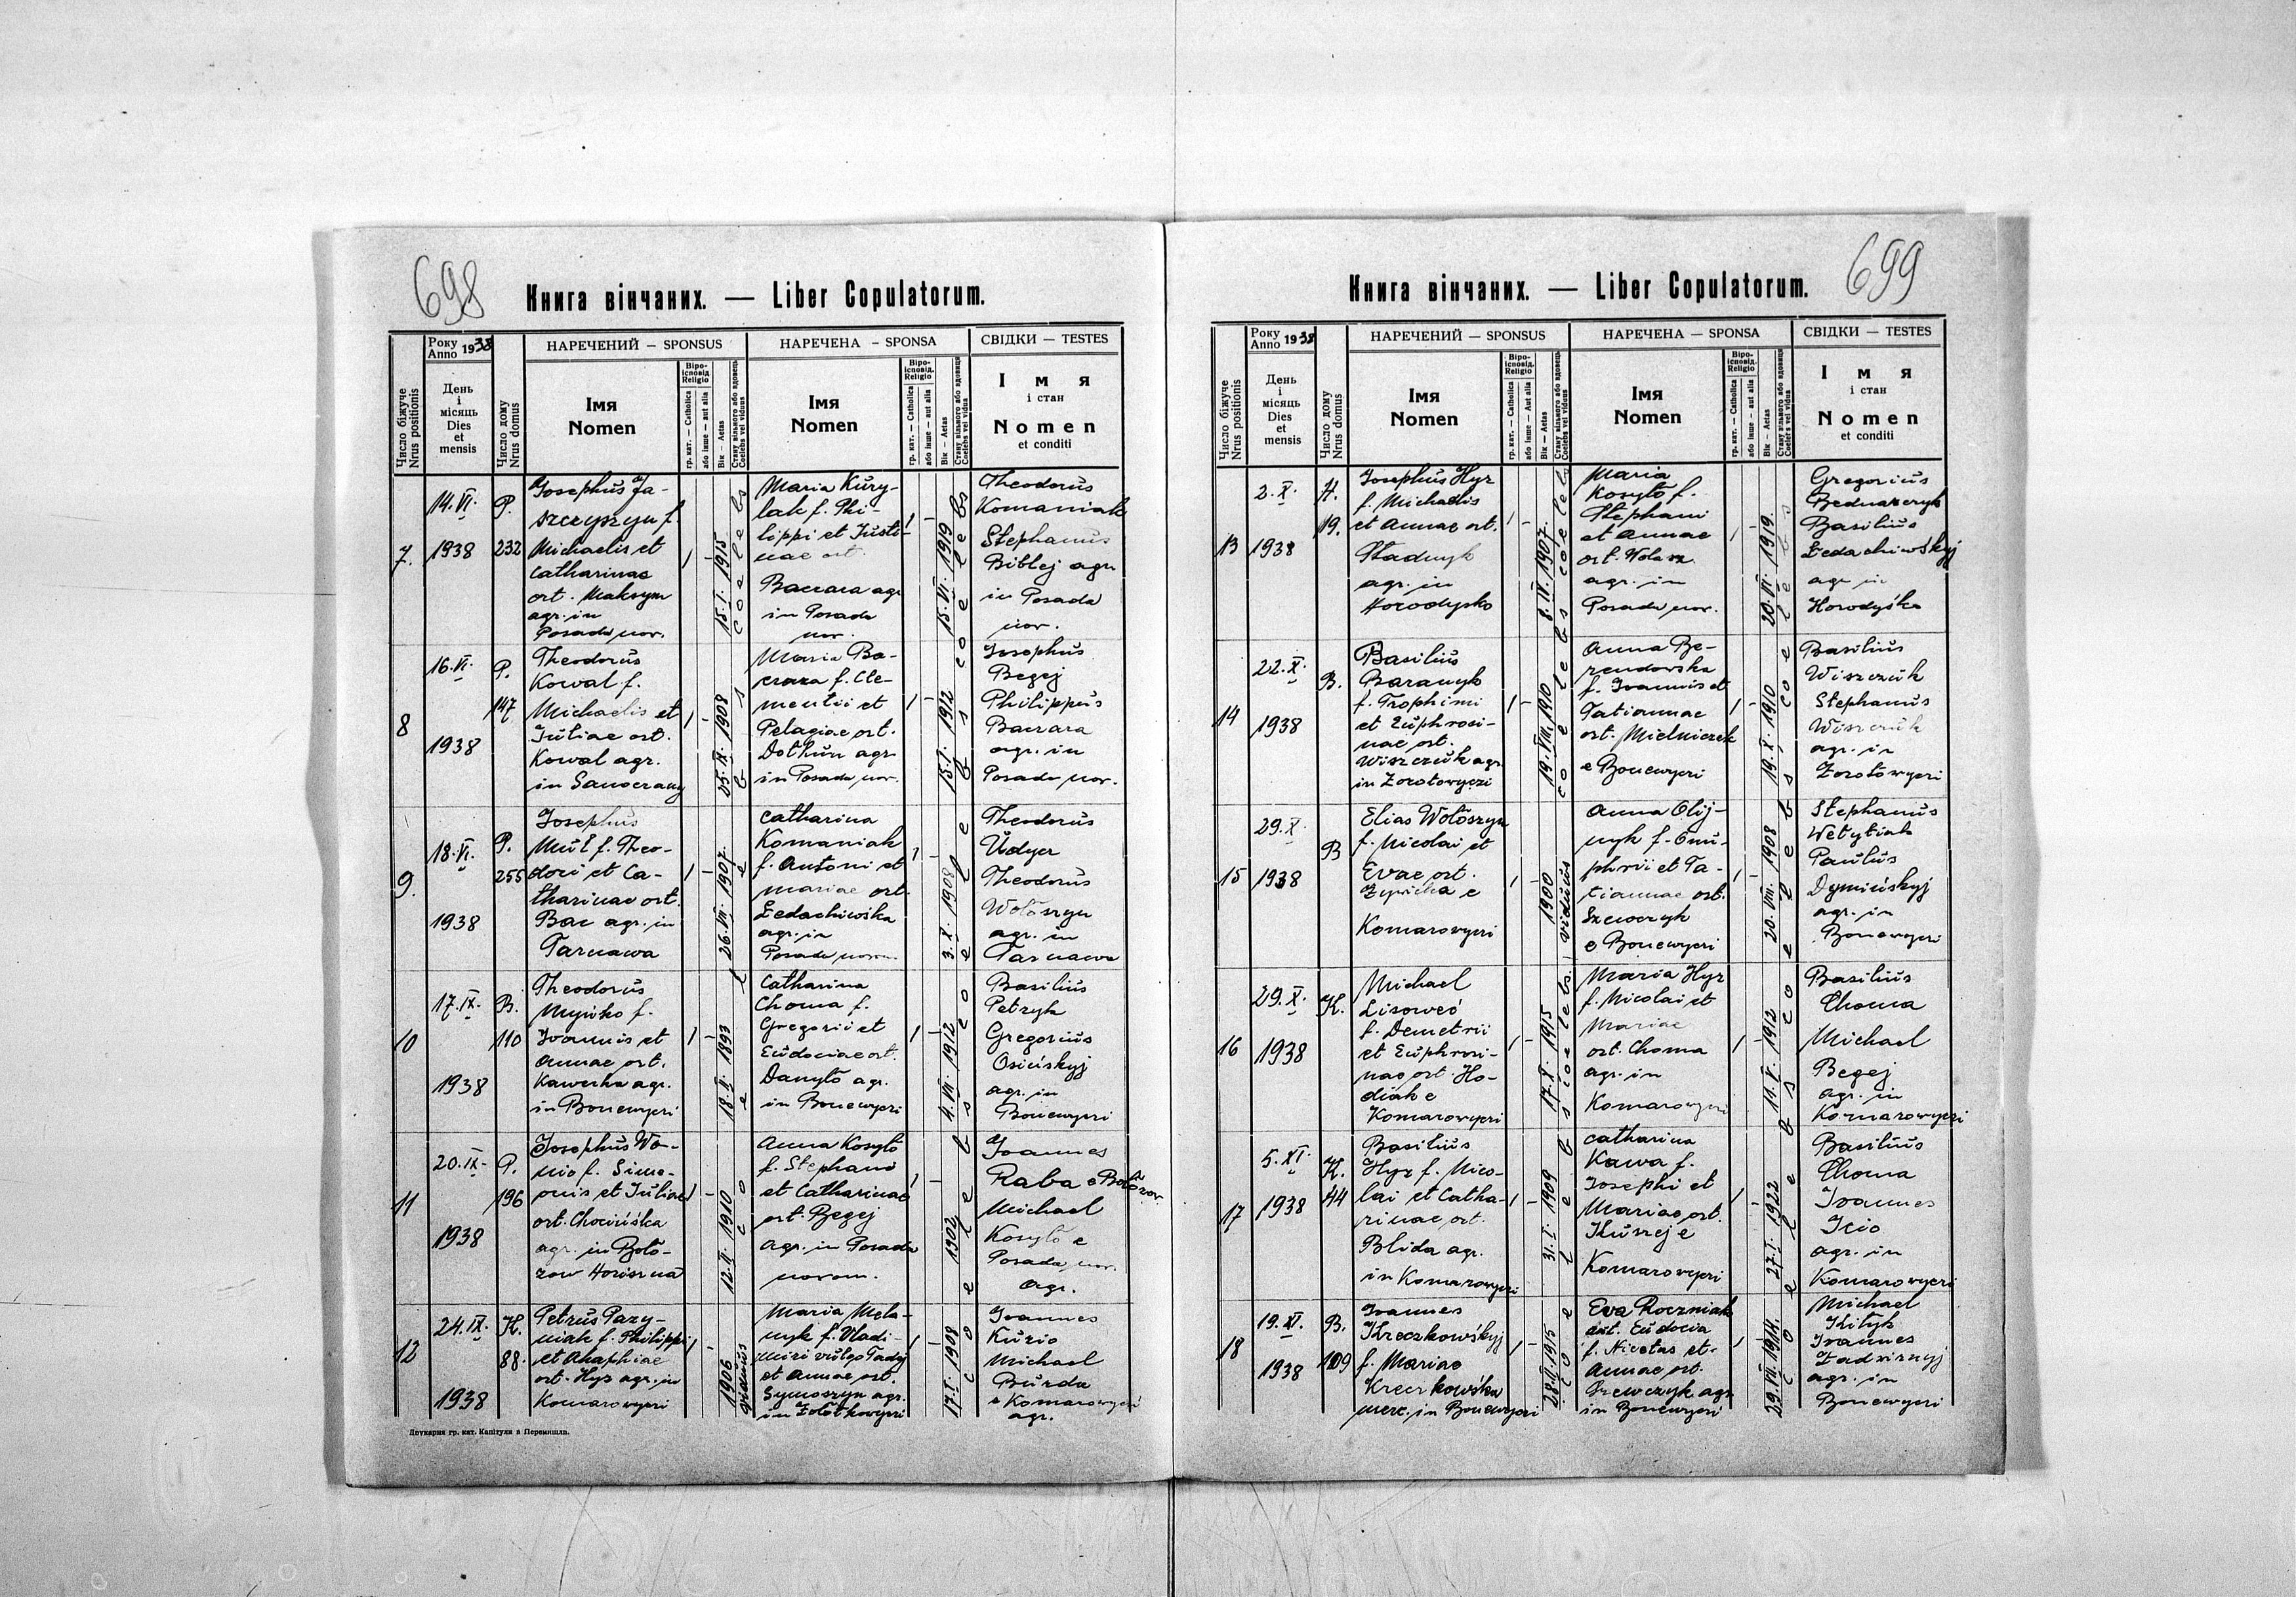 698
Книга вінчаних. — Liber Copulatorum.
Число біжуче
Nrus positionis
Року
Anno 1938
День
і
місяць
Dies
et
mensis
Число дому
Nrus domus
НАРЕЧЕНИЙ — SPONSUS
Імя
Nomen
Віро-
ісповід.
Religio
гр. кат. — Catholica
або інше — aut alia
Вік — Aetas
Стану вільного або вдовець
Coelebs vel viduus
НАРЕЧЕНА - SPONSA
Імя
Nomen
Віро-
ісповід.
Religio
гр. кат. — Catholica
або інше — aut alia
Вік — Aetas
Стану вільного або вдовиця
Coelebs vel vidua
СВІДКИ — TESTES
Імя
і стан
Nomen
et conditi
7.
14.VI.
1938
P.
232
Josephus Ja-
szczyszyn f.
Michaelis et
Catharinae
ort. Maksym
agr. in
Posada nov.
15.I.1915
coelebs
Maria Kury-
lak f. Phi-
lippi et Justi-
nae ort.
Baccara agr
in Posada
nov.
15.VI.1919
coelebs
Theodorus
Komaniak
Stephanus
Biblej agr
in Posada
nov.
8
16.VI.
1938
P.
147
Theodorus
Kowal f.
Michaelis et
Juliae ort.
Kowal agr.
in Sanoczany
25.IX.1908
Maria Ba-
ccara f. Cle-
mentii et
Pelagiae ort.
Dothun agr
in Posada nov.
15.I.1912
Josephus
Begej
Philippus
Baccara
agr. in
Posada nov.
9.
18.VI.
1938
P.
255
Josephus
Mul f. Theo-
dori et Ca-
tharinae ort.
Bac agr. in
Tarnawa
26.VII.1907
Catharina
Komaniak
f. Antoni et
Mariae ort.
Ledachiwska
agr. in
Posada novem.
3.X.1908
Theodorus
Udycz
Theodorus
Wołoszyn
agr. in
Tarnawa
10
17.IX.
1938
B.
110
Theodorus
f.
Joannis et
Annae ort.
Kawerka agr.
in Bonewyczi
18.II.1893
Catharina
Choma f.
Gregorii et
Eudociae ort.
Danyło agr.
in Bonewyczi
4.VII.1912
Basilius
Petryk
Gregorius
Osińskyj
agr. in
Bonewyczi
11
20.IX.
1938
P.
196
Josephus Wa-
nio f. Simo-
onis et Juliae
ort. Chocińska
agr. in Boło-
zow Horiszna
12.II.1910
Anna Kosyło
f. Stephani
et Catharinae
ort. Begej
agr. in Posada
novom.
1902
Joannes
Raba e Bołozow
Michael
Kosyło e
Posada nov.
agr.
12
24.IX.
1938
K.
88.
Petrus Pazy-
niak f. Philippi
et Ahaphiae
ort. Hyz agr. in
Komarowyczi
1906
viduus
Maria Mela-
nyk f. Vladi-
miri vulgo Tadej
et Annae ort.
Symoszyn agr.
in Zołotkowyczi
17.I.1908
Joannes
Kurio
Michael
Burda
e Komarowyczi
agr.
Друкарня гр. кат. Капітули в Перемишлі.
699
Книга вінчаних. — Liber Copulatorum.
Число біжуче
Nrus positionis
Року
Anno 1938
День
і
місяць
Dies
et
mensis
Число дому
Nrus domus
НАРЕЧЕНИЙ — SPONSUS
Імя
Nomen
Віро-
ісповід.
Religio
гр. кат. — Catholica
або інше — Aut alia
Вік — Aetas
Стану вільного або вдовець
Coelebs vel viduus
НАРЕЧЕНА — SPONSA
Імя
Nomen
Віро-
ісповід.
Religio
гр. кат. — Catholica
або інше — aut alia
Вік — Aetas
Стану вільного або вдовиця
Coelebs vel vidua
СВІДКИ — TESTES
Імя
і стан
Nomen
et conditi
13
2.X.
1938
H.
19.
Josephus Hyz
f. Michaelis
et Annae ort.
Stadnyk
agr. in
Horodysko
8.IV.1907.
coelebs
Maria
Kosyło f.
Stephani
et Annae
ort. Wolasz
agr. in
Posada nov.
20.VI.1919.
Gregorius
Bednarczyk
Basilius
Ledachiwskyj
agr in
Horodyśko
14
22.X.
1938
B.
Basilius
Baranyk
f. Trophimi
et Euphrosi-
nae ort.
Wiszczuk agr
in Zorotowyczi
19.VIII.1910
Anna Be-
rendowska
f. Joannis et
Tatiannae
ort. Mielniczek
e Bonewyczi
19.X.1910
Basilius
Wiszczuk
Stephanus
Wiszczuk
agr. in
Zorotowyczi
15
29.X.
1938
B
Elias Wołoszyn
f. Nicolai et
Evae ort.
e
Komarowyczi
1900
viduus
Anna Olij-
nyk f. Onu-
phrii et Ta-
tiannae ort.
Szewczyk
e Bonewyczi
20.VIII.1908
Stephanus
Wełytiak
Paulus
Dymińskyj
agr. in
Bonewyczi
16
29.X.
1938
K.
Michael
Lisoweć
f. Demetrii
et Euphrosi-
nae ort. Ho-
diak e
Komarowyczi
17.X.1915
Maria Hyz
f. Nicolai et
Mariae
ort. Choma
agr. in
Komarowyczi
11.V.1912
Basilius
Choma
Michael
Begej
agr. in
Komarowyczi
17
5.XI.
1938
K.
44
Basilius
Hyz f. Nico-
lai et Catha-
rinae ort.
Blida agr.
in Komarowyczi
31.I.1909
Catharina
Kawa f.
Josephi et
Mariae ort.
Kuszej e
Komarowyczi
27.I.1922
Basilius
Choma
Joannes
Icio
agr. in
Komarowyczi
18
19.XI.
1938
B.
109
Joannes
Kreczkowśkyj
f. Mariae
Kreczkowśka
merc. in Bonewyczi
28.II.1915
Eva Roczniak
ant. Eudocia
f. Nicetas et
Annae ort.
Szewczyk agr
in Bonewyczi
29.VII.1914.
Michael
Kityk
Joannes
Zadwirnyj
agr. in
Bonewyczi